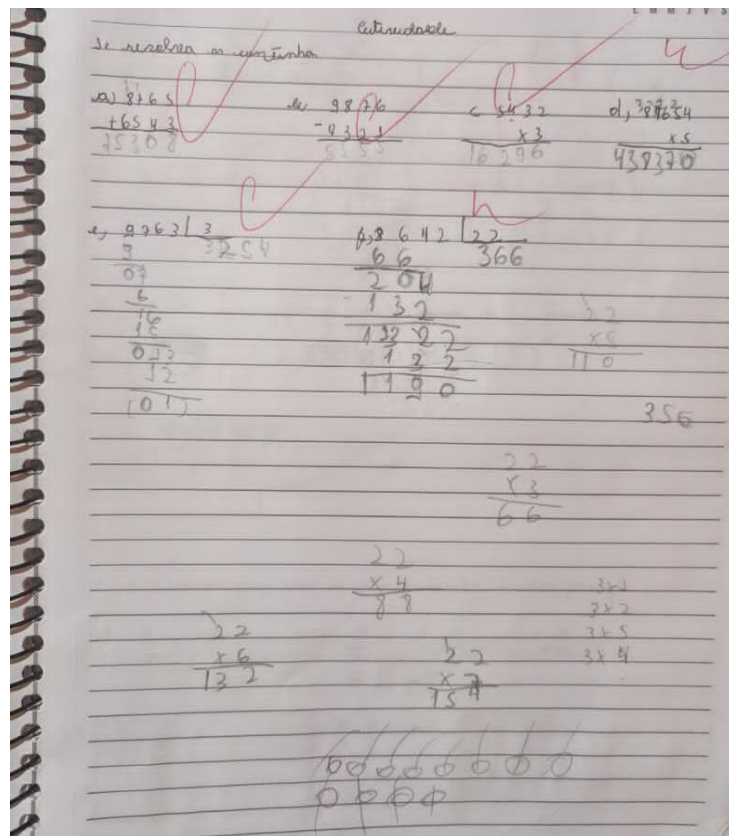 D M M J V S
Se resolva as continhas
a) 8765
+6543
15308
9876
-4321
5555
c 5432
x3
16296
d,
x5
438370
e, 9763 3
3254
9
07
6
16
15
12
(01)
8642 22
66 366
204
132
22
x5
110
1190
356
22
x3
66
22
x4
88
3x1
3x2
3x5
3x4
22
x6
132
22
x7
154